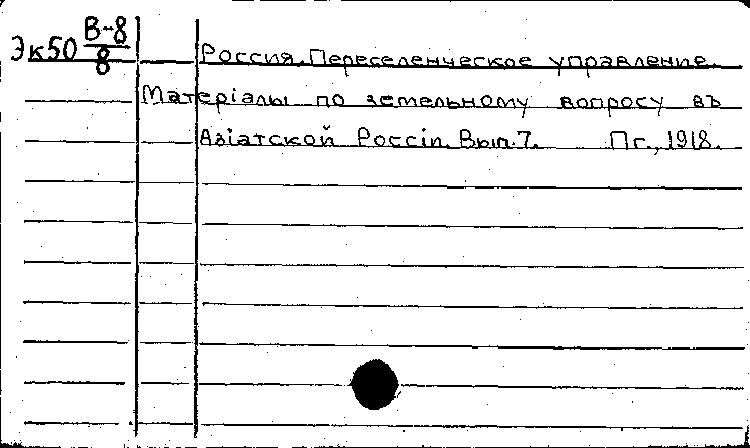 Эк50 В-8
8
Россия. Переселенческое управление.
Матерiалы по земельному вопросу въ
Азiатской Россiи. Вып.7. Пг., 1918.